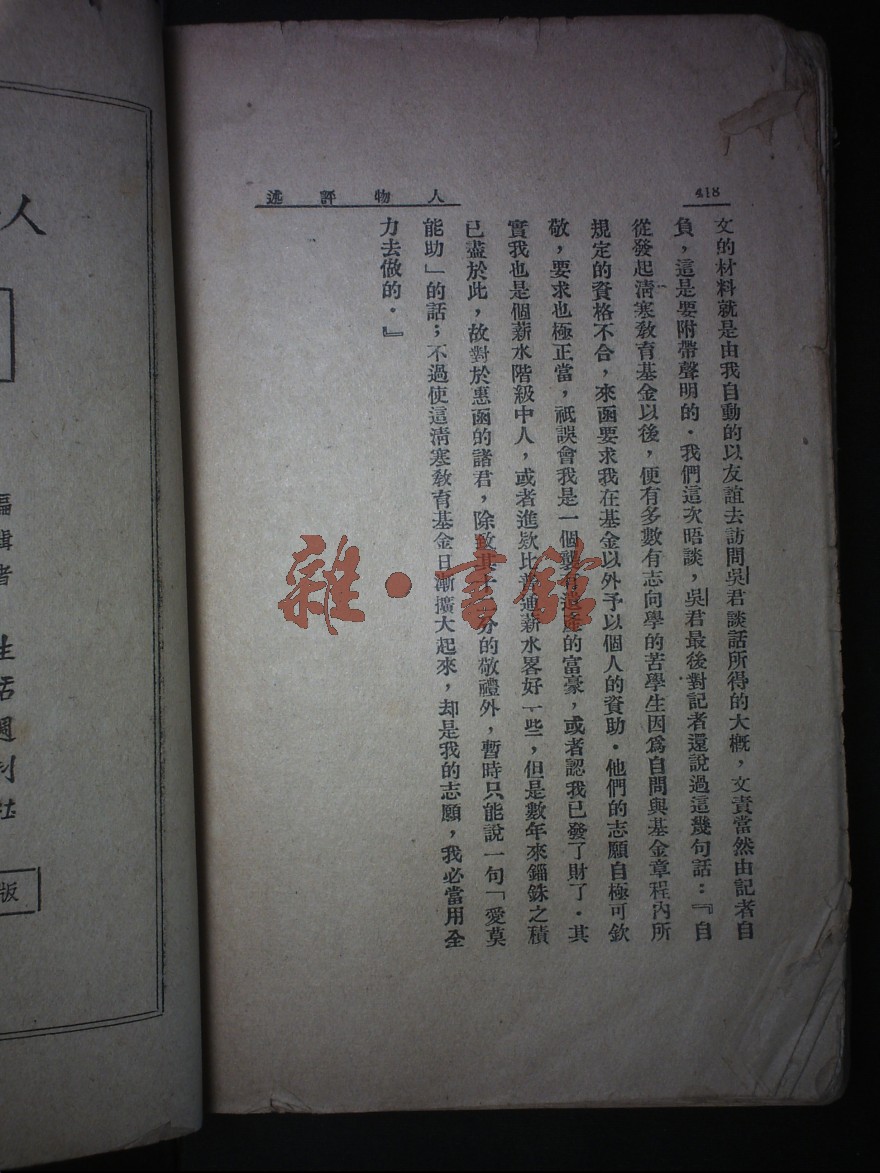 418
人物評述
文的材料就是由我自動的以友誼去訪問吳君談話所得的大概，文責當然由記者自
負，這是要附帶聲明的．我們這次晤談，吳君最後對記者還說過這幾句話：『自
從發起清寒敎育基金以後，便有多數有志向學的苦學生因爲自問與基金章程內所
規定的資格不合，來函要求我在基金以外予以個人的資助．他們的志願自極可欽
敬，要求也極正當，祇誤會我是一個襲有遺產的富豪，或者認我已發了財了．其
實我也是個薪水階級中人，或者進欵比普通薪水畧好一些，但是數年來錙銖之積
已盡於此，故對於惠函的諸君，除致其十二分的敬禮外，暫時只能說一句「愛莫
能助」的話；不過使這清寒敎育基金日漸擴大起來，却是我的志願，我必當用全
力去做的．』
雜·書館
人
編輯者
生活週刊社
版